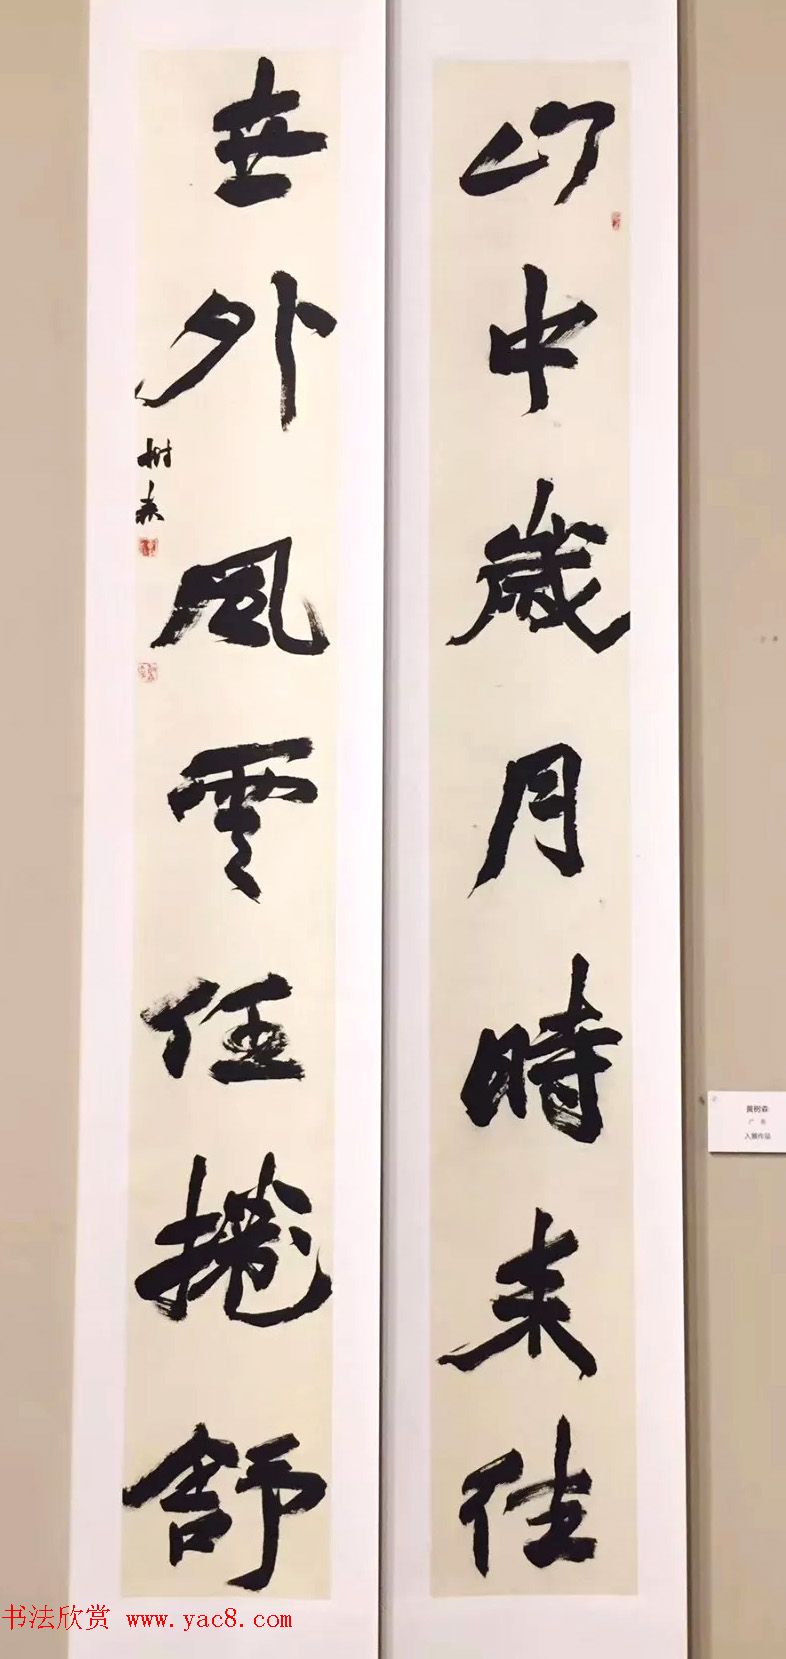 山中歲月時來往
世外風雲任捲舒
树森
黄树森
广东
入展作品
书法欣赏 www.yac8.com